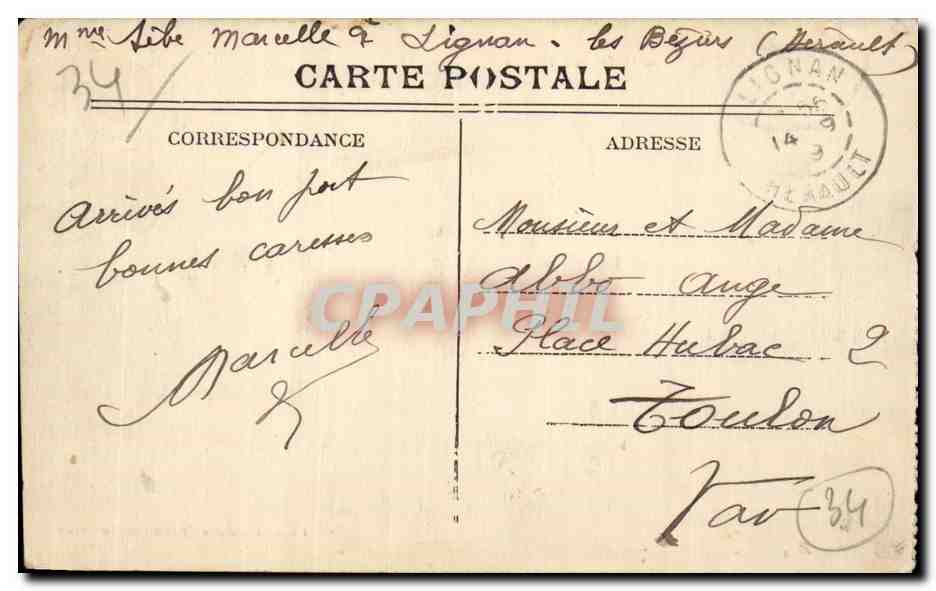 Mme Sèbe Marcelle à Lignan - les Béziers (Hérault)
34
CARTE POSTALE
CORRESPONDANCE
ADRESSE
LIGNAN
14 9
HERAULT
Arrivés bon port
bonnes caresses
Marcelle
Monsieur et Madame
Abbo Ange
Place Hubac 2
Toulon
Var
34
CPAPHIL